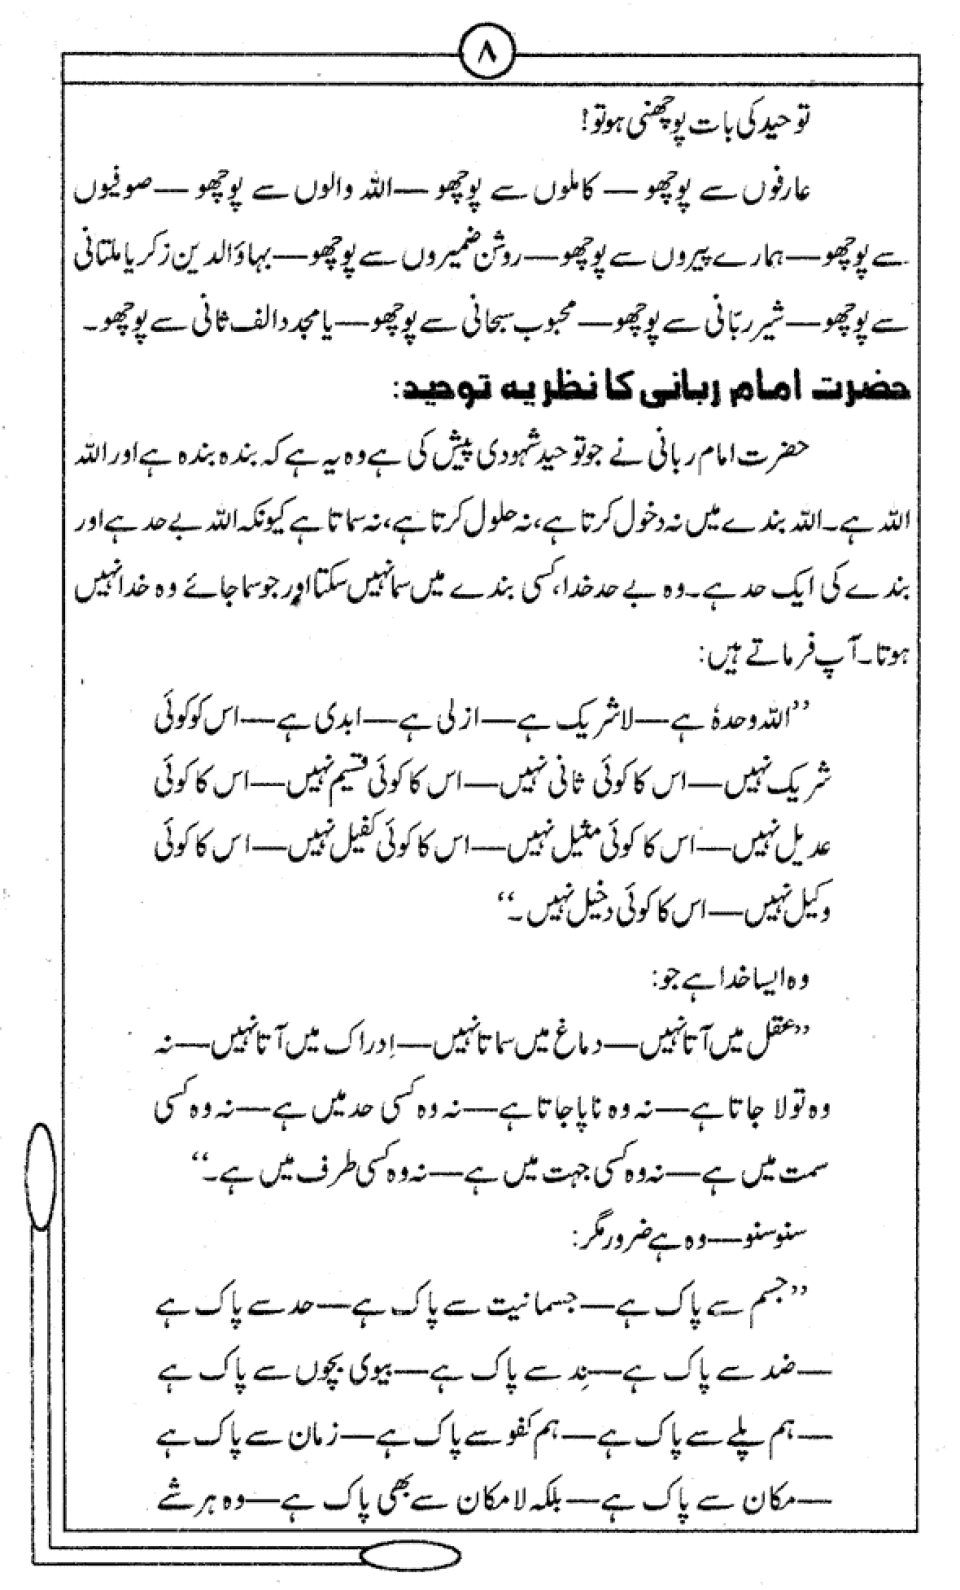 ۸
توحید کی بات پوچھنی ہو تو!
عارفوں سے پوچھو — کاملوں سے پوچھو — اللہ والوں سے پوچھو — صوفیوں
سے پوچھو — ہمارے پیروں سے پوچھو — روشن ضمیروں سے پوچھو — بہاؤالدین زکریا ملتانی
سے پوچھو — شیر ربّانی سے پوچھو — محبوب سبحانی سے پوچھو — یا مجدد الف ثانی سے پوچھو۔
حضرت امام ربانی کا نظریہ توحید:
حضرت امام ربانی نے جو توحید شہودی پیش کی ہے وہ یہ ہے کہ بندہ بندہ ہے اور اللہ
اللہ ہے۔ اللہ بندے میں نہ دخول کرتا ہے، نہ حلول کرتا ہے، نہ سماتا ہے کیونکہ اللہ بے حد ہے اور
بندے کی ایک حد ہے۔ وہ بے حد خدا، کسی بندے میں سما نہیں سکتا اور جو سما جائے وہ خدا نہیں
ہوتا۔ آپ فرماتے ہیں:
”اللہ وحدہٗ ہے — لاشریک ہے — ازلی ہے — ابدی ہے — اس کو کوئی
شریک نہیں — اس کا کوئی ثانی نہیں — اس کا کوئی قسیم نہیں — اس کا کوئی
عدیل نہیں — اس کا کوئی مثیل نہیں — اس کا کوئی کفیل نہیں — اس کا کوئی
وکیل نہیں — اس کا کوئی دخیل نہیں۔“
وہ ایسا خدا ہے جو:
”عقل میں آتا نہیں — دماغ میں سماتا نہیں — اِدراک میں آتا نہیں — نہ
وہ تولا جاتا ہے — نہ وہ ناپا جاتا ہے — نہ وہ کسی حد میں ہے — نہ وہ کسی
سمت میں ہے — نہ وہ کسی جہت میں ہے — نہ وہ کسی طرف میں ہے۔“
سنو سنو — وہ ہے ضرور مگر:
”جسم سے پاک ہے — جسمانیت سے پاک ہے — حد سے پاک ہے
— ضد سے پاک ہے — نِد سے پاک ہے — بیوی بچوں سے پاک ہے
— ہم پلے سے پاک ہے — ہم کفو سے پاک ہے — زمان سے پاک ہے
— مکان سے پاک ہے — بلکہ لامکان سے بھی پاک ہے — وہ ہر شے